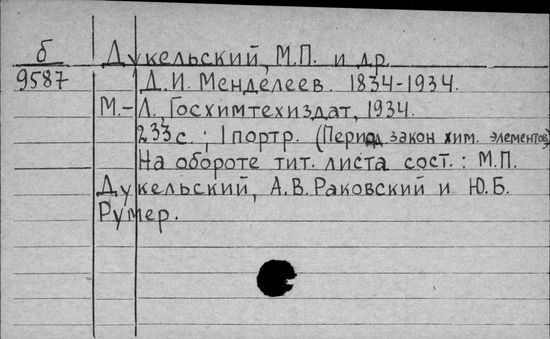 б
9587
Дукельский, М.П. и др.
Д.И. Менделеев. 1834-1934.
М.-Л., Госхимтехиздат, 1934.
233 с.; 1 портр. (Период. закон хим. элементов)
На обороте тит. листа сост.: М.П.
Дукельский, А.В. Раковский и Ю.Б.
Румер.